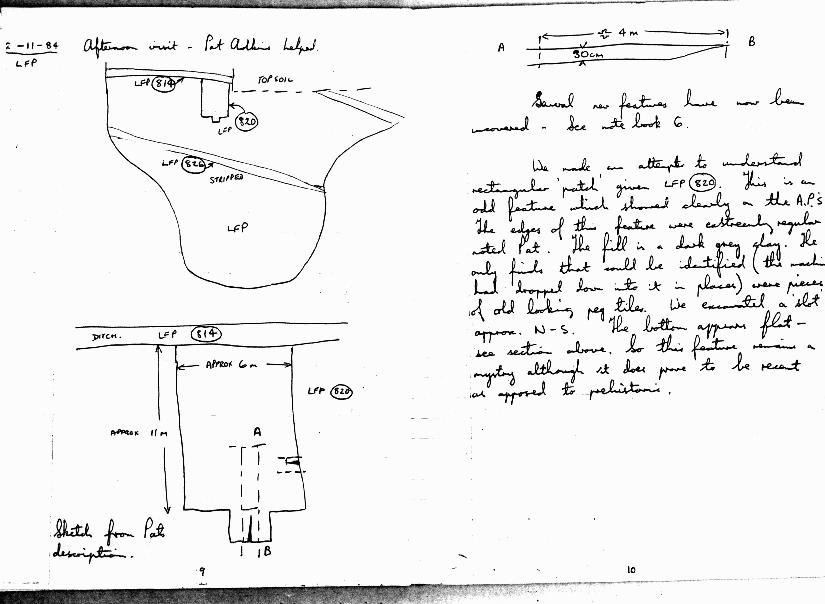 2-11-84 Afternoon visit - Pat Adkins helped.
LFP
LFP 814
TOPSOIL
LFP 820
LFP 826
STRIPPED
LFP
DITCH. LFP 814
APPROX 6m
LFP 820
APPROX 11M
A
B
Sketch from Pats
description.
9
≈ 4m
A B
30cm
Several new features have now been
uncovered - See note book 6.
We made an attempt to understand
rectangular 'patch' given LFP 820. This is an
odd feature which showed clearly on the A.P.'s
The edges of this feature were extremely regular
noted Pat. The fill is a dark grey clay. The
only finds that could be identified (the machine
had dropped down into it in places) were pieces
of old looking peg tiles. We excavated a slot
approx. N-S. The bottom appears flat -
see section above. So this feature remains a
mystery although it does prove to be recent
as apposed to prehistoric.
10